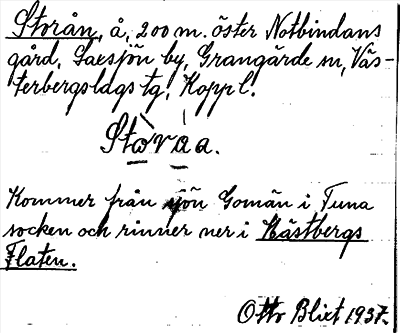 Storån, å, 200 m. öster Notbindans
gård, Saesjön by, Grangärde sn, Väs-
terbergslags tg, Koppl.
Storåa.
Kommer från sjön Gomän i Tuna
socken och rinner ner i Hästbergs
Flaten.
Otto Blixt 1937.